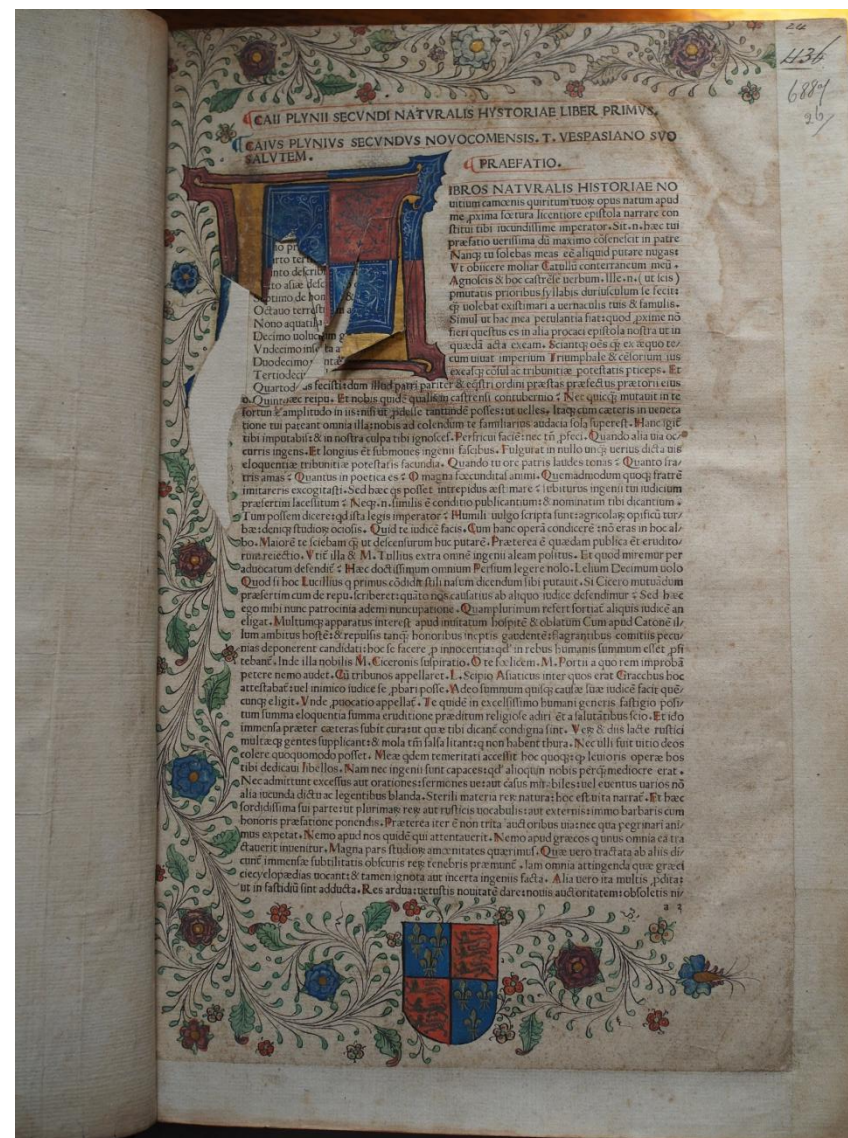 24
436
6889
26
CAII PLYNII SECVNDI NATVRALIS HYSTORIAE LIBER PRIMVS.
CAIVS PLYNIVS SECVNDVS NOVOCOMENSIS. T. VESPASIANO SVO
SALVTEM.
PRAEFATIO.
IBROS NATVRALIS HISTORIAE NO
uitium camœnis quiritum tuoꝝ opus natum apud
me ꝓxima fœtura licentiore epistola narrare con
stitui tibi iucundissime imperator. Sit.n.hæc tui
præfatio uerissima dũ maximo cõsenescit in patre
Nanqꝫ tu solebas meas eē aliquid putare nugas:
Vt obiicere moliar Catullũ conterraneum meũ.
Agnoscis & hoc castrēse uerbum. Ille.n.(ut scis)
ꝑmutatis prioribus syllabis duriusculum se fecit:
q̃ uolebat existimari a uernaculis tuis & famulis.
Simul ut hac mea petulantia fiat: quod ꝓxime nõ
fieri questus es in alia procaci epistola nostra ut in
quædã acta exeam. Sciantqꝫ oēs q̃ ex æquo te/
cum uiuat imperium Triumphale & cēsorium ius
exeasqꝫ cõsul ac tribunitiæ potestatis pticeps. Et
fecisti: dum illud patri pariter & eq̃stri ordini præstas præfectus prætorii eius
reipu. Et nobis quidē qualis in castrensi contubernio? Nec quicq̃ mutauit in te
amplitudo in iis: nisi ut ꝓdesse tantundē posses: ut uelles. Itaqꝫ cum cæteris in uenera
tione tui pateant omnia illa: nobis ad colendum te familiarius audacia sola superest. Hanc igiť
tibi imputabis: & in nostra culpa tibi ignosces. Perfricui faciē: nec tñ ꝓfeci. Quando alia uia oc/
curris ingens. Et longius ēt submoues ingenii fascibus. Fulgurat in nullo unqꝫ uerius dicta uis
eloquentiæ tribunitiæ potestatis facundia. Quando tu ore patris laudes tonas? Quanto fra/
tris amas? Quantus in poetica es? O magna fœcunditas animi. Quemadmodum quoqꝫ fratrē
imitareris excogitasti. Sed hæc q̃s posset intrepidus æstimare? subiturus ingenii tui iudicium
præsertim lacessitum? Neqꝫ.n.similis ē conditio publicantium: & nominatim tibi dicantium.
Tum possem dicere: qd ista legis imperator? Humili uulgo scripta sunt: agricolaꝝ opificũ tur/
bæ: deniqꝫ studioꝝ ociosis. Quid te iudicē facis. Cum hanc operã condicere: nõ eras in hoc al/
bo. Maiorē te sciebam q̃ ut descensurum huc putarē. Præterea ē quædam publica ēt erudito/
rum reiectio. Vtiť illa & M. Tullius extra omnē ingenii aleam positus. Et quod miremur per
aduocatum defendiť? Hæc doctissimum omnium Persium legere nolo. Lelium Decimum uolo
Quod si hoc Lucillius q primus cõdidit stili nasum dicendum sibi putauit. Si Cicero mutuãdum
præsertim cum de repu. scriberet: quãto nos causatius ab aliquo iudice defendimur? Sed hæc
ego mihi nunc patrocinia ademi nuncupatione. Quamplurimum refert sortiať aliquis iudicē an
eligat. Multumqꝫ apparatus interest apud inuitatum hospitē & oblatum Cum apud Catonē il/
lum ambitus hostē: & repulsis tanqꝫ honoribus ineptis gaudentē: flagrantibus comitiis pecu/
nias deponerent candidati: hoc se facere ꝓ innocentia: qd' in rebus humanis summum esset ꝓfi
tebanť. Inde illa nobilis M. Ciceronis suspiratio. O te fœlicem. M. Portii a quo rem improbã
petere nemo audet. Cũ tribunos appellaret. L. Scipio Asiaticus inter quos erat Gracchus hoc
attestabať: uel inimico iudice se ꝓbari posse. Adeo summum quisqꝫ causæ suæ iudicē facit quē/
cunqꝫ eligit. Vnde ꝓuocatio appellať. Te quidē in excelsissimo humani generis fastigio posi/
tum summa eloquentia summa eruditione præditum religiose adiri ēt a salutãtibus scio. Et ido
immensa præter cæteras subit cura: ut quæ tibi dicanť condigna sint. Veꝝ & diis lacte rustici
multæqꝫ gentes supplicant: & mola tñ salsa litant: q non habent thura. Nec ulli fuit uitio deos
colere quoquomodo posset. Meæ qdem temeritati accessit hoc quoqꝫ: q̃ leuioris operæ hos
tibi dedicaui libellos. Nam nec ingenii sunt capaces: qd' alioquin nobis perq̃ mediocre erat.
Nec admittunt excessus aut orationes: sermones ue: aut casus mirabiles: uel euentus uarios nõ
alia iucunda dictu ac legentibus blanda. Sterili materia reꝝ natura: hoc est uita narrať. Et hæc
sordidissima sui parte: ut plurimaꝝ reꝝ aut rusticis uocabulis: aut externis: immo barbaris cum
honoris præfatione ponendis. Præterea iter ē non trita auctoribus uia: nec qua pegrinari ani/
mus expetat. Nemo apud nos quidē qui attentauerit. Nemo apud græcos q unus omnia ea tra
ctauerit inuenitur. Magna pars studioꝝ amœnitates quærimus. Quæ uero tractata ab aliis di/
cunť immensæ subtilitatis obscuris reꝝ tenebris præmunť. Iam omnia attingenda quæ græci
ciecyclopædias uocant: & tamen ignota aut incerta ingeniis facta. Alia uero ita multis ꝓdita:
ut in fastidiũ sint adducta. Res ardua: uetustis nouitatē dare: nouis auctoritatem: obsoletis ni/
a 2